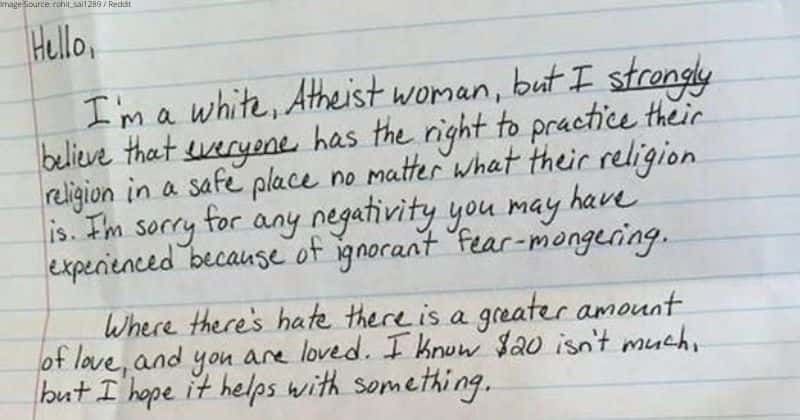 Image Source: rohit_sai1289 / Reddit
Hello,
I'm a white, Atheist woman, but I strongly
believe that everyone has the right to practice their
religion in a safe place no matter what their religion
is. I'm sorry for any negativity you may have
experienced because of ignorant fear-mongering.
Where there's hate there is a greater amount
of love, and you are loved. I know $20 isn't much,
but I hope it helps with something.